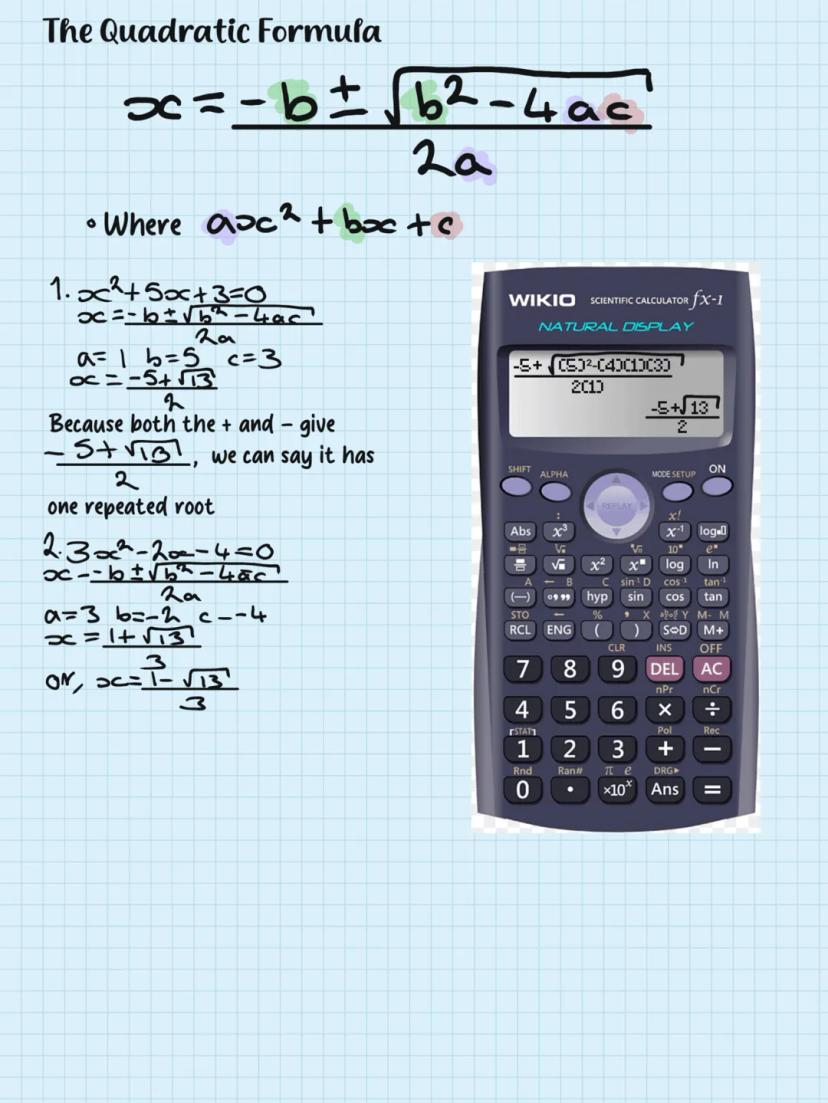 The Quadratic Formula
x = -b ± √b² - 4ac
2a
• Where ax² + bx + c
1. x² + 5x + 3 = 0
x = -b ± √b² - 4ac
2a
a = 1 b = 5 c = 3
x = -5 + √13
2
Because both the + and - give
-5 + √13, we can say it has
2
one repeated root
2. 3x² - 2x - 4 = 0
x - -b ± √b² - 4ac
2a
a = 3 b = -2 c - -4
x = 1 + √13
3
or, x = 1 - √13
3
WIKIO SCIENTIFIC CALCULATOR fx-1
NATURAL DISPLAY
-5+ √(5)²-(4)(1)(3)
2(1)
-5+√13
2
SHIFT ALPHA MODE SETUP ON
REPLAY
: x!
Abs x³ x⁻¹ log
√ 10 e
√ x² x log ln
A ← B C sin⁻¹ D cos⁻¹ tan⁻¹
(—) °'" hyp sin cos tan
STO ← % , X Y M- M
RCL ENG ( ) S⇔D M+
CLR INS OFF
7 8 9 DEL AC
nPr nCr
4 5 6 × ÷
[STAT] Pol Rec
1 2 3 + −
Rnd Ran# π e DRG▸
0 • ×10ˣ Ans =